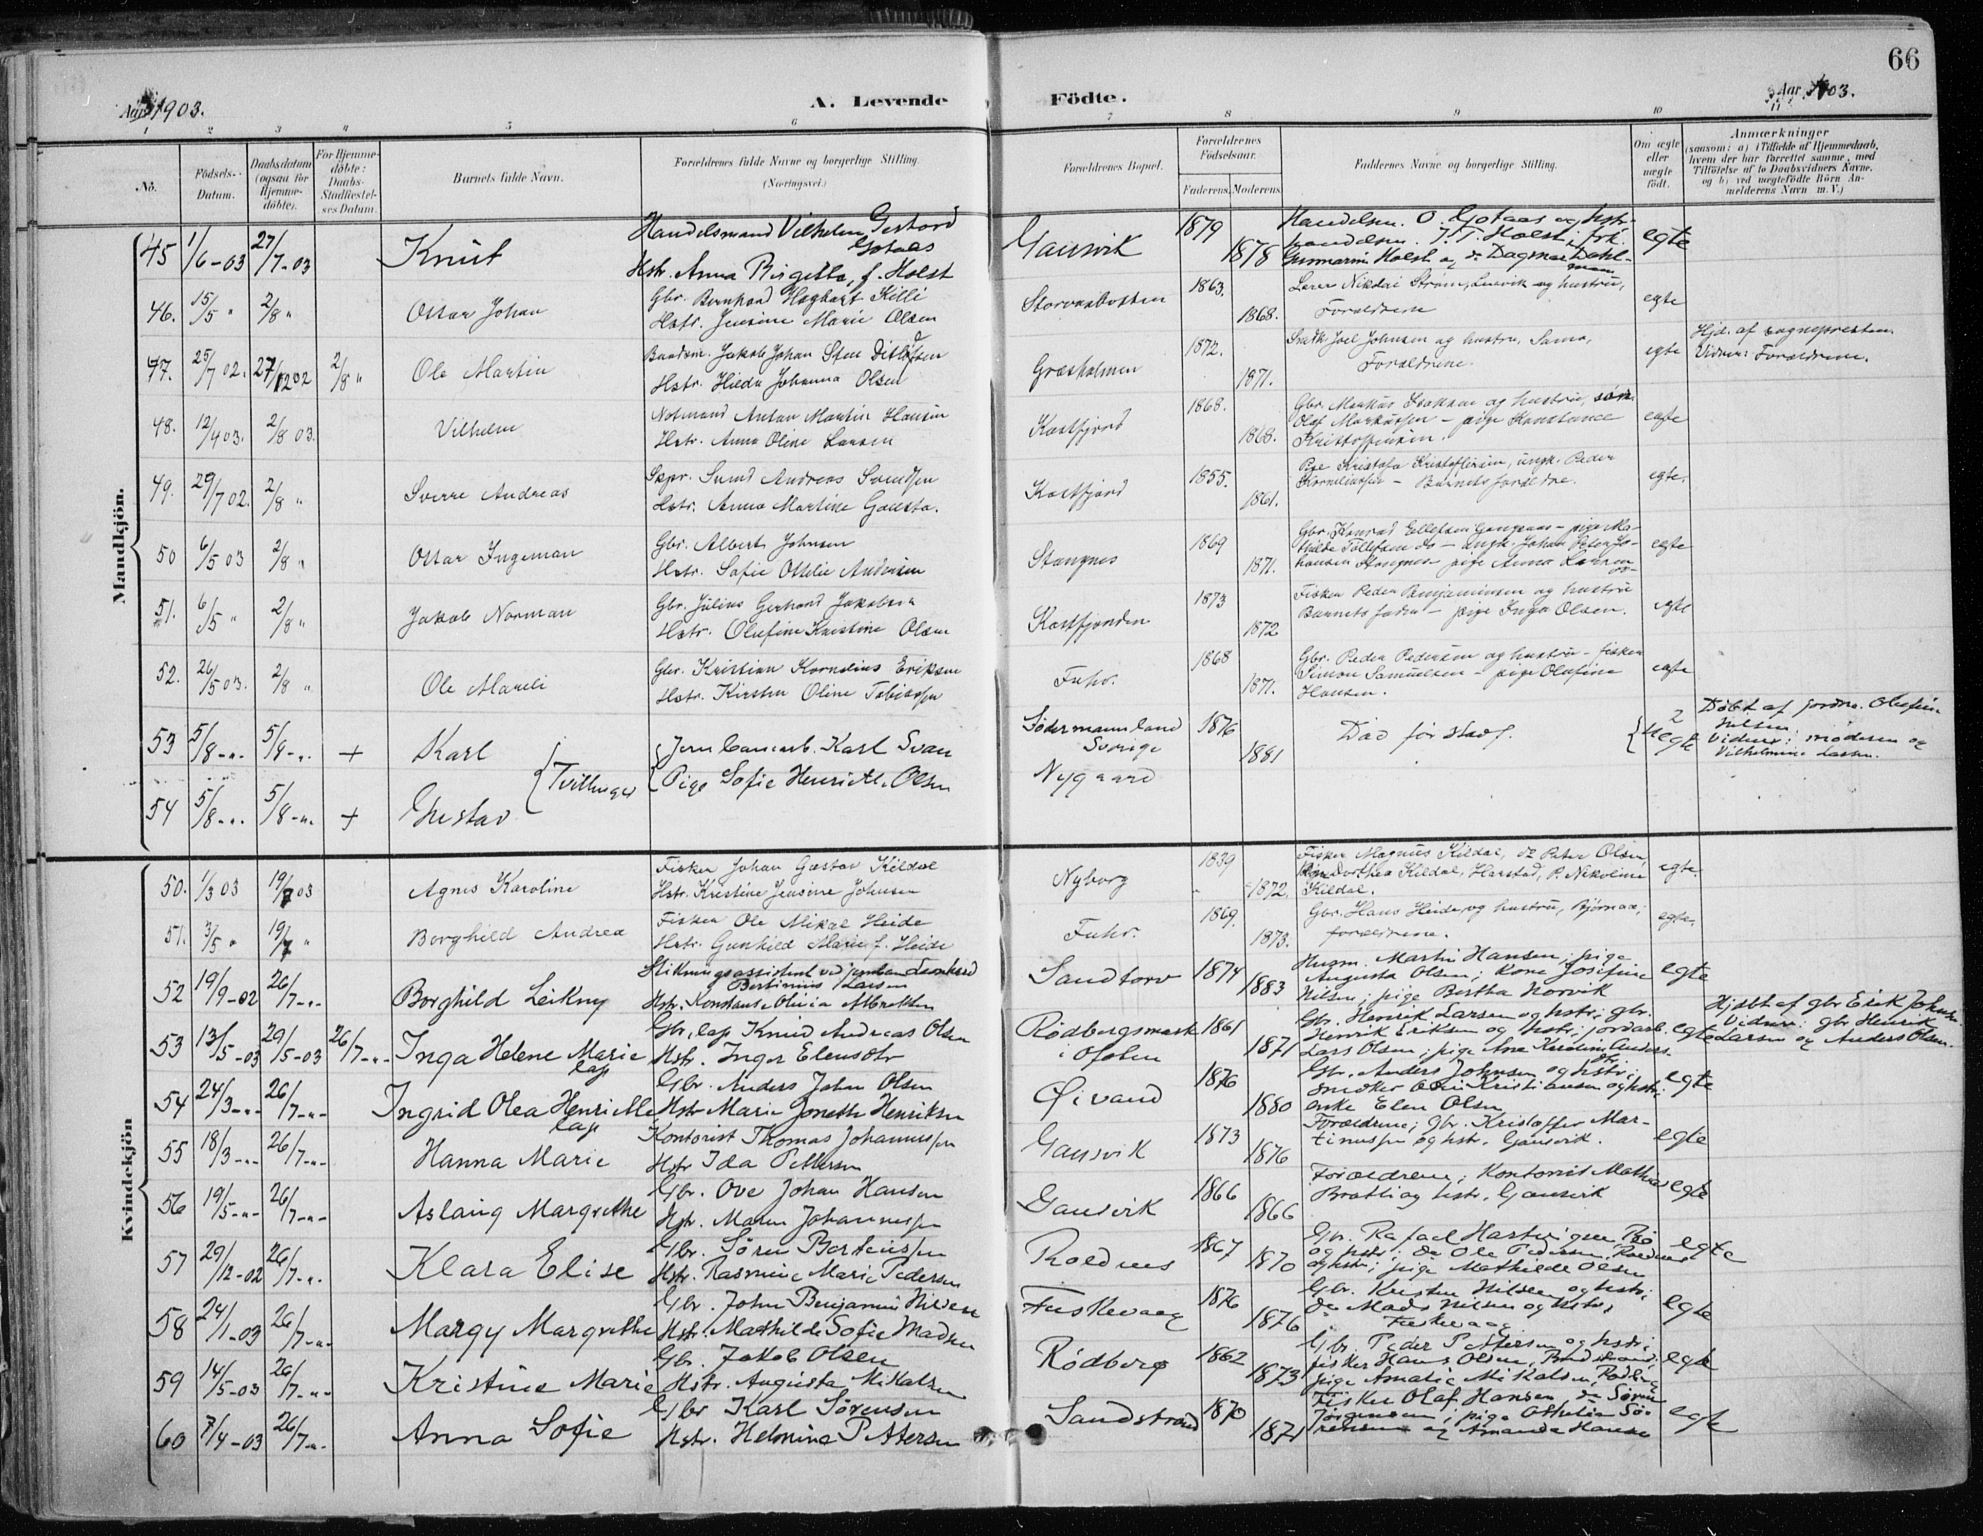 66
Aar 1903.
A. Levende
Födte.
Aar 1903.
1 2 3 4 5 6 7 8 9 10 11
No. Födsels-Datum. Daabsdatum (ogsaa for Hjemme-döbte). For Hjemme-döbte: Daabs-Stadfæstel-ses Datum. Barnets fulde Navn. Forældrenes fulde Navne og borgerlige Stilling. (Næringsvei.) Forældrenes Bopæl. Forældrenes Födselsaar. Faderens. Moderens. Faddernes Navne og borgerlige Stilling. Om ægte eller uægte födt. Anmærkninger (saasom: a) i Tilfælde af Hjemmedaab, hvem der har forrettet samme, med Tilföielse af to Daabsvidners Navne, og b) ved uægtefödte Börn An-melderens Navn m. V.)
Mandkjön.
45 1/6-03 27/7-03 Knut Handelsmand Vilhelm Gerhard Gotaas Gausvik 1879 Handelsm. O. Gotaas og hstr.
Hstr. Anna Birgitta, f. Holst 1878 handelsm. J. T. Holst, frk. egte
Holst og do Dagmar Dahl-
46. 15/5 " 2/8 " Ottar Johan Gbr. Bernhard Hagbart Killi 1863. Lærer Nikolai Strøm, og hustru, egte
Hstr. Jensine Marie Olsen 1868. Forældrene
47. 25/7 02. 27/12 02 2/8 " Ole Martin Jakob Johan Sten Ditlefsen Græsholmen 1872. Smith Joel Johnsen og hustru, Sama, egte Hjd. af sognepresten.
Hstr. Hilda Johanna Olsen 1871. Forældrene. Vidner: Forældrene.
48. 12/4 03. 2/8 03. Vilhelm Notmand Anton Martin Hansen Kastfjord 1868. Gbr. Markus Isaksen og hustru, søn egte
Hstr. Anna Oline Larsen 1868. Olaf Markussen – pige Konstance
Kristoffersen.
49. 29/7 02. 2/8 " Sverre Andreas Skpr. Sund Andreas Svendsen Kastfjord 1855. Pige Kristofa Kristoffersen, ungk. Peder egte.
Hstr. Anna Martine 1861. Korneliussen – Barnets forældre.
50 6/5 03 2/8 " Ottar Ingeman Gbr. Albert Johnsen Stangnes 1869 Gbr. Konrad Ellefsen – pige Ma- egte
Hstr. Sofie Ottilie Andersen 1871. thilde Tollefsen do – ungk. Johan Peter Jo-
hansen Stangnes – pige Anna Larsen
51. 6/5 " 2/8 " Jakob Norman Gbr. Julius Gerhard Jakobsen Kastfjorden 1873 Fisker Peder Benjaminsen og hustru egte
Hstr. Olufine Kristine Olsen 1872 Barnets fader – pige Inga Olsen.
52. 26/5 03. 2/8 " Ole Mareli Gbr. Kristian Kornelius Eriksen Fuhr. 1868 Gbr. Peder Pedersen og hustru – fisker egte
Hstr. Kirsten Oline Tobiassen 1871. Simon Samuelsen – pige Olufine
Hansen.
53 5/8-"- 5/8-"- + Karl Karl Svan Södermannland 1876 Død før stadf. 2 uegte Döbt af jordm. Olufine
Sverige Nilsen
Tvillinger Pige Sofie Henriette Olsen Nygaard 1881 Vidner: moderen og
54 5/8-"- 5/8-"- + Gustav Vilhelmine Larsen.
Kvindekjön
50. 1/3 03 19/7 03 Agnes Karoline Fisker Johan Gustav Kildal Nyborg 1839 Fisker Magnus Kildal, do Peter Olsen, egte.
Hstr. Kristine Jensine Johnsen 1872. Dorthea Kildal, Harstad, P. Nikoline
Kildal.
51. 3/5 " 19/7 " Borghild Andrea Fisker Ole Mikal Heide Fuhr. 1869. Gbr. Hans Heide og hustru, Bjørnaa, egte.
Hstr. Gunhild Marie f. Heide 1873. forældrene.
52 19/9-02 26/7-"- Borghild Leikny Stikningsassistent ved jernbanen Leonhard Sandtorv 1874 Husm. Martin Hansen, pige egte
Bertinius Larsen Augusta Olsen; Kone Josefine
Hstr. Konstanse Olivia Albriktsen 1883 Nilsen; pige Bertha Norvik
53 13/5-03 29/5-03 26/7-"- Inga Helene Marie lap Gbr. lap Knud Andreas Olsen Rødbergsmark 1861 Gbr. Henrik Larsen og hstr; gbr. egte Hjdbt af gbr Erik Johnsen.
Hstr. Inger Elensdtr i Ofoten 1871 Henrik Eriksen og hstr; jordarb. Vidner: gbr Henrik
Lars Olsen; pige Ane Karoline Anders-dtr Larsen og Anders Olsen.
54 24/3-"- 26/7-"- Ingrid Olea Henriette lap Gbr. Anders John Olsen Øivand 1876 Gbr. Anders Johnsen og hstr; egte
Hstr Marie Jonette Henriksen 1880 snedker Kristiansen og hstr;
enke Elen Olsen
55 18/3-"- 26/7-"- Hanna Marie Kontorist Thomas Johannessen Gausvik 1873 Forældrene; gbr. Kristoffer Mar- egte
Hstr Ida Pettersen 1876 tinussen og hstr. Gausvik.
56 19/5-"- 26/7-"- Aslaug Margrethe Gbr. Ove Johan Hansen Gausvik 1866 Forældrene; Kontorist Mathias egte
Hstr. Maren Johannessen 1866 Bratli og hstr. Gausvik
57 29/12-02 26/7-"- Klara Elise Gbr. Sören Berteussen Roldnes 1867 Gbr. Rafael Hartvigsen egte
Hstr. Rasmine Marie Pedersen 1870 og hstr; do Ole Pedersen, Roldnes
og hstr; pige Mathilde Olsen
58 24/1-03 26/7-"- Margy Margrethe Gbr. John Benjamin Nilsen Fuskevaag 1876 Gbr. Kristen Nilsen og hstr; egte
Hstr. Mathilde Sofie Madsen 1876 do Mads Nilsen og hstr,
Fuskevaag
59 14/5-03 26/7-"- Kristine Marie Gbr. Jakob Olsen Rödberg 1862 Gbr. Peder Pettersen og hstr; egte
Hstr. Augusta Mikalsen 1873 fisker Hans Olsen,
pige Amalie Mikalsen, Rödberg
60 7/4-03 26/7-"- Anna Sofie Gbr Karl Sörensen Sandstrand 1870 Fisker Olaf Hansen, do Sören egte
Hstr. Helmine Pettersen 1871 Jörgensen; pige Ottilia Sö-
rensen og Amanda Hansen